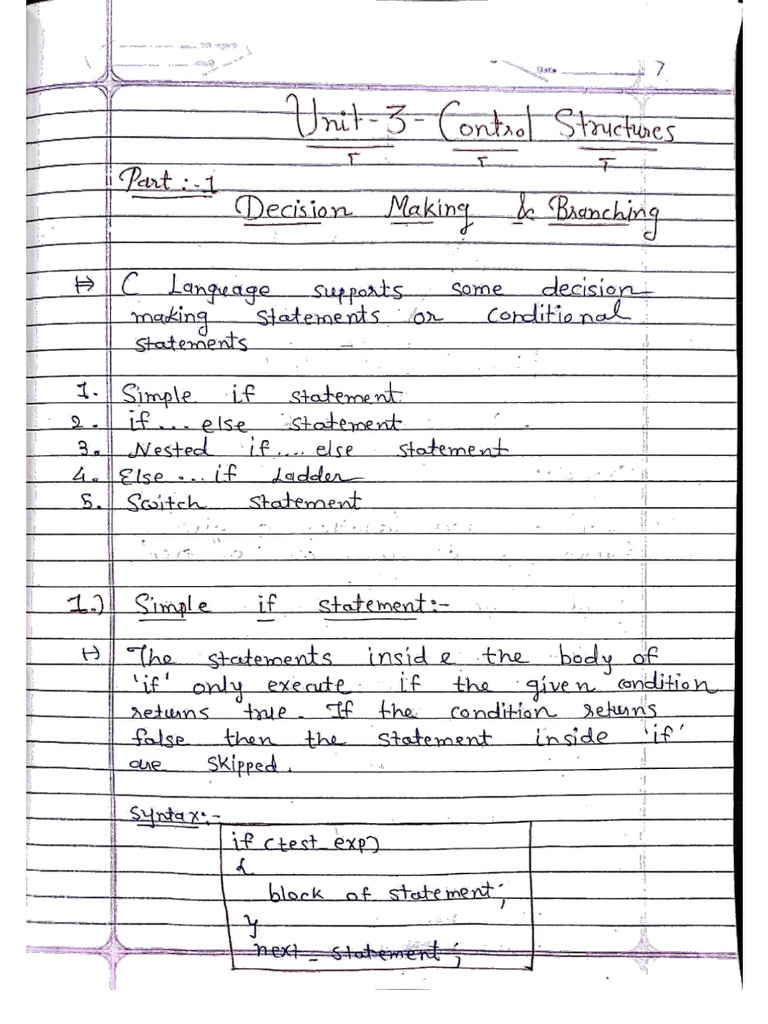 Date 7
Unit-3-Control Structures
Part:-1
Decision Making & Branching
C Language supports some decision
making statements or conditional
statements
1. Simple if statement
2. if... else statement
3. Nested if.... else statement
4. Else...if Ladder
5. Switch statement
1.) Simple if statement:-
The statements inside the body of
'if' only execute if the given condition
returns true. If the condition returns
false then the statement inside 'if'
are skipped.
Syntax:-
if (test_exp)
{
block of statement;
}
next_statement;